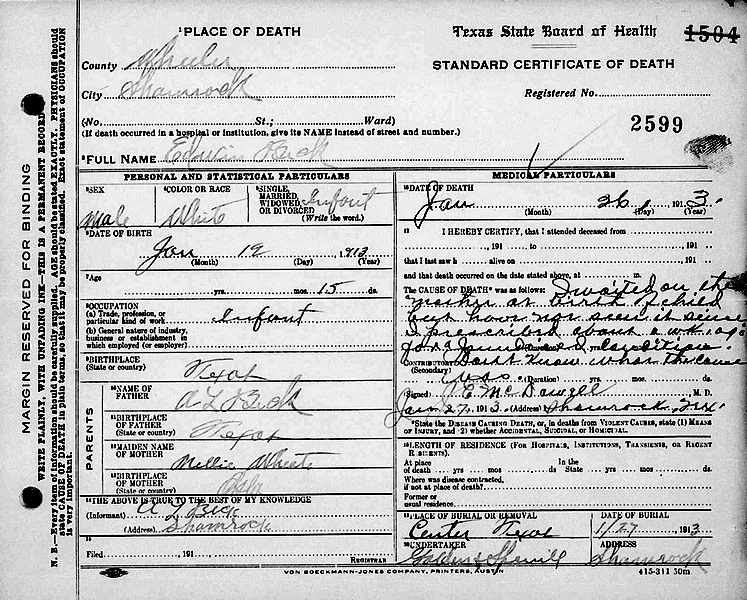 MARGIN RESERVED FOR BINDING
WRITE PLAINLY, WITH UNFADING INK—THIS IS A PERMANENT RECORD
N. B.—Every item of information should be carefully supplied. AGE should be stated EXACTLY. PHYSICIANS should
state CAUSE OF DEATH in plain terms, so that it may be properly classified. Exact statement of OCCUPATION
is very important.
1 PLACE OF DEATH
County Wheeler
City Shamrock
(No. St.; Ward)
(If death occurred in a hospital or institution, give its NAME instead of street and number.)
Texas State Board of Health 1504
STANDARD CERTIFICATE OF DEATH
Registered No.
2599
2 FULL NAME Edwin
PERSONAL AND STATISTICAL PARTICULARS
3 SEX Male
4 COLOR OR RACE White
5 SINGLE, MARRIED, WIDOWED, OR DIVORCED (Write the word.) Infant
6 DATE OF BIRTH
Jan 12 1913
(Month) (Day) (Year)
7 Age
yrs. mos. 15 ds.
8 OCCUPATION
(a) Trade, profession, or
particular kind of work Infant
(b) General nature of industry,
business or establishment in
which employed (or employer)
9 BIRTHPLACE
(State or country) Texas
PARENTS
10 NAME OF
FATHER A L
11 BIRTHPLACE
OF FATHER
(State or country) Texas
12 MAIDEN NAME
OF MOTHER Nellie White
13 BIRTHPLACE
OF MOTHER
(State or country)
14 THE ABOVE IS TRUE TO THE BEST OF MY KNOWLEDGE
(Informant) A L
(Address) Shamrock
15
Filed 191
REGISTRAR
MEDICAL PARTICULARS
16 DATE OF DEATH
Jan 26, 1913.
(Month) (Day) (Year)
17 I HEREBY CERTIFY, that I attended deceased from
, 191 to , 191
that I last saw h alive on 191
and that death occurred on the date stated above, at m.
The CAUSE OF DEATH* was as follows: I waited on the
mother at birth of child
but have not seen it since
I prescribed about a wk. ago
for
(Duration) yrs. mos. ds.
Contributory Don't know what the cause
(Secondary) was
(Duration) yrs. mos. ds.
Signed E McDowell M. D.
Jan 27, 1913. (Address) Shamrock Tex
*State the DISEASE CAUSING DEATH, or, in deaths from VIOLENT CAUSES, state (1) MEANS
OF INJURY, and (2) whether ACCIDENTAL, SUICIDAL, or HOMICIDAL.
18 LENGTH OF RESIDENCE (FOR HOSPITALS, INSTITUTIONS, TRANSIENTS, OR RECENT
RESIDENTS).
At place In the
of death yrs mos ds. State yrs. mos. ds.
Where was disease contracted,
if not at place of death?
Former or
usual residence.
19 PLACE OF BURIAL OR REMOVAL DATE OF BURIAL
Center Texas 1/27 1913
20 UNDERTAKER ADDRESS
Shamrock
VON BOECKMANN-JONES COMPANY, PRINTERS, AUSTIN
415-311 50m